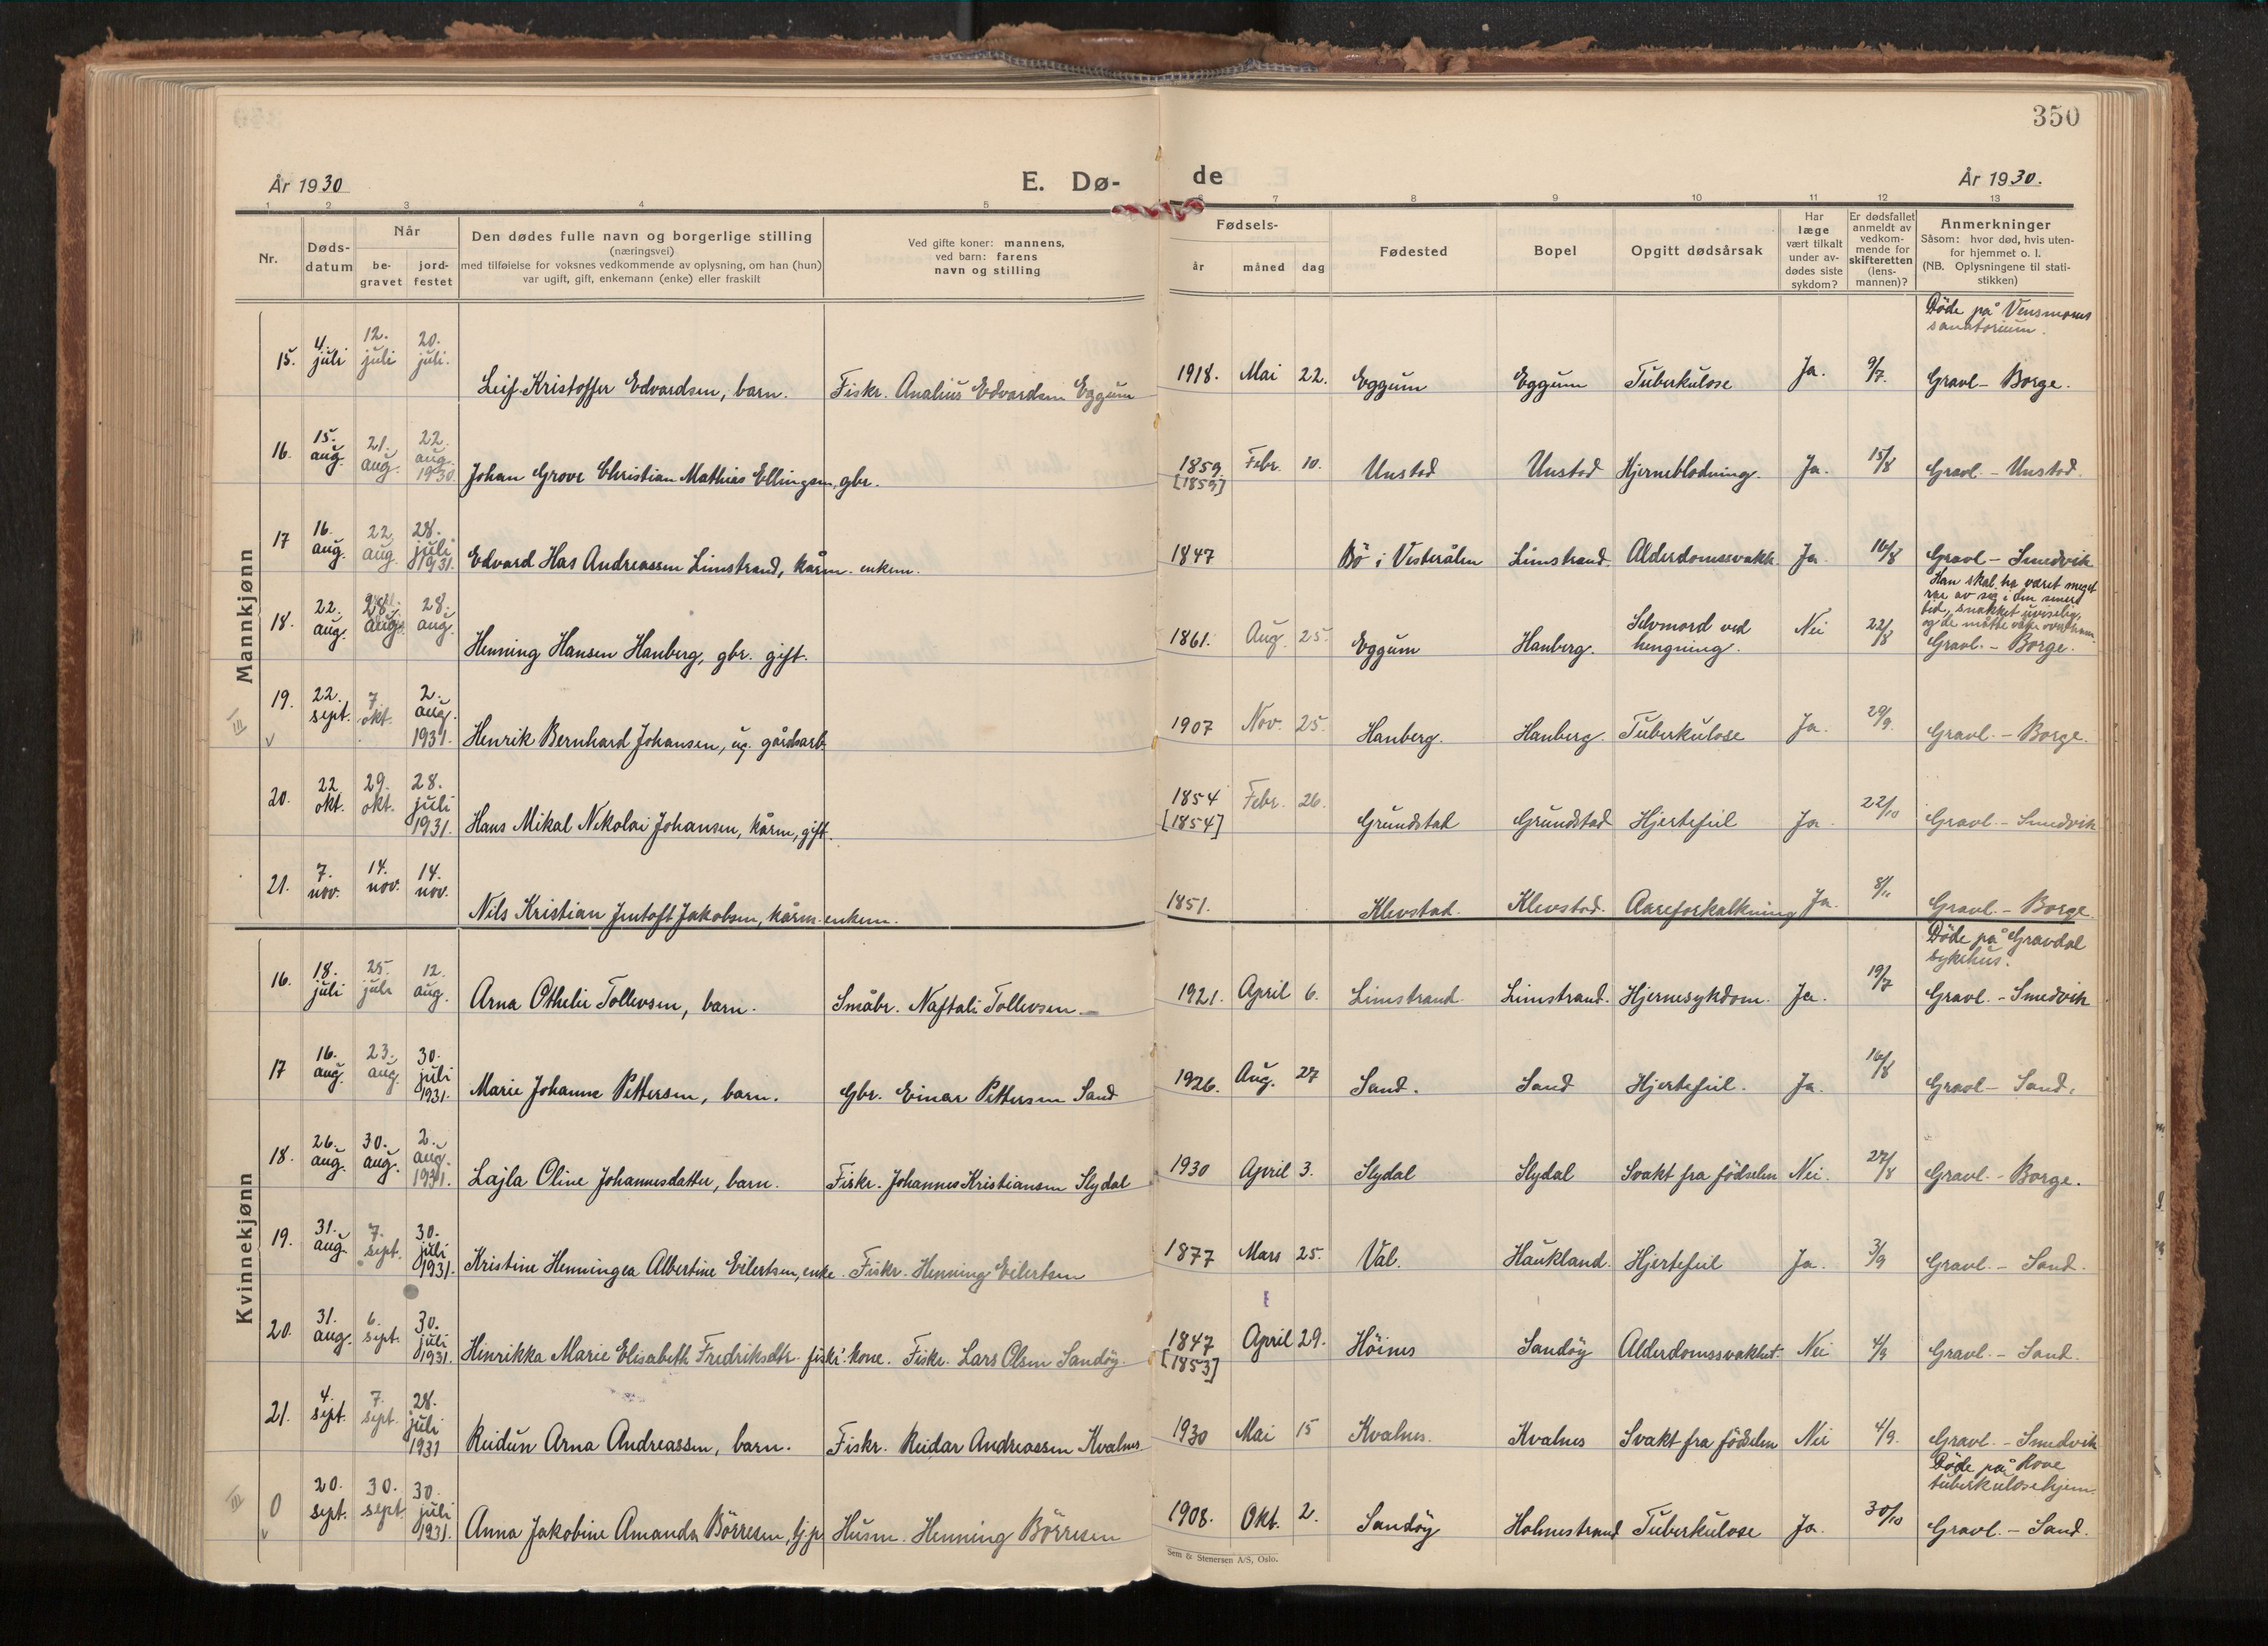 350
År 1930
E. Dø-
de
År 1930.
1 2 3 4 5 6 7 8 9 10 11 12 13
Nr.
Døds-
datum
Når
be-
gravet
jord-
festet
Den dødes fulle navn og borgerlige stilling
(næringsvei)
med tilføielse for voksnes vedkommende av oplysning, om han (hun)
var ugift, gift, enkemann (enke) eller fraskilt
Ved gifte koner: mannens,
ved barn: farens
navn og stilling
Fødsels-
år måned dag
Fødested
Bopel
Opgitt dødsårsak
Har
læge
vært tilkalt
under av-
dødes siste
sykdom?
Er dødsfallet
anmeldt av
vedkom-
mende for
skifteretten
(lens-
mannen)?
Anmerkninger
Såsom: hvor død, hvis uten-
for hjemmet o. l.
(NB. Oplysningene til stati-
stikken)
Mannkjønn
15. 4. juli 12. juli 20. juli. Leif Kristoffer Edvardsen, barn. Fiskr. Analius Edvardsen Eggum 1918. Mai 22. Eggum Eggum Tuberkulose Ja. 9/7.
Døde på Vensmoens
sanatorium.
Gravl - Borge.
16. 15. aug. 21. aug. 22. aug. 1930. Johan Grove Christian Mathias Ellingsen, gbr. 1859. [1859] Febr. 10. Unstad Unstad Hjerneblødning. Ja. 15/8 Gravl. - Unstad.
17 16. aug. 22. aug. 28. juli 1931. Edvard Has Andreassen Limstrand, kårm. enkem. 1847 Bö i Vesterålen Limstrand Alderdomssvakh. Ja. 16/8 Gravl - Smedvik
18. 22. aug. 28. aug. 28. aug. Henning Hansen Hanberg, gbr. gift. 1861. Aug. 25. Eggum Hanberg. Selvmord ved hengning. Nei 22/8
Han skal ha været meget
rar av sig i den senere
tid, snakket uviselig,
og de måtte våke over ham.
Gravl. - Borge.
III
19. 22. sept. 7. okt. 2. aug. 1931. Henrik Bernhard Johansen, ug. gårdsarb. 1907 Nov. 25. Hanberg. Hanberg. Tuberkulose Ja. 29/9. Gravl. - Borge.
20. 22. okt. 29. okt. 28. juli 1931. Hans Mikal Nikolai Johansen, kårm, gift. 1854 [1854] Febr. 26. Grundstad Grundstad Hjertefeil Ja 22/10 Gravl. - Smedvik
21. 7. nov. 14. nov. 14. nov. Nils Kristian Jentoft Jakobsen, kårm. enkem. 1851. Klevstad. Klevstad. Aareforkalkning Ja. 8/11 Gravl. - Borge
Kvinnekjønn
16. 18. juli 25. juli 12. aug. Arna Othelie Tollevsen, barn. Småbr. Naftali Tollevsen. 1921. April 6. Limstrand. Limstrand. Hjernesykdom. Ja. 19/7
Döde på Gravdal
sykehus.
Gravl. - Smedvik
17 16. aug. 23. aug. 30. juli 1931. Marie Johanne Pettersen, barn. Gbr. Einar Pettersen Sand 1926. Aug. 27 Sand. Sand Hjertefeil. Ja. 16/8 Gravl - Sand.
18. 26. aug. 30. aug. 2. aug. 1931. Lajla Oline Johannesdatter, barn. Fiskr. Johannes Kristiansen Slydal 1930 April 3. Slydal Slydal Svakt fra födselen Nei. 27/8 Gravl. - Borge.
19. 31. aug. 7. sept. 30. juli 1931. Kristine Henningea Albertine Eilertsen, enke. Fiskr. Henning Eilertsen 1877 Mars 25. Val. Haukland. Hjertefeil Ja. 3/9 Gravl. - Sand.
20. 31. aug. 6. sept. 30. juli 1931. Henrikka Marie Elisabeth Fredriksdtr. fiskr. kone. Fiskr. Lars Olsen Sandöy. 1847 [1853] April 29. Höines Sandöy Alderdomssvakhet. Nei 4/9 Gravl. - Sand.
21. 4. sept. 7. sept. 28. juli 1931 Reidun Arna Andreassen, barn. Fiskr. Reidar Andreassen Kvalnes 1930 Mai 15 Kvalnes. Kvalnes Svakt fra födselen Nei 4/9. Gravl. - Smedvik
III
0 20. sept. 30. sept. 30. juli 1931. Anna Jakobine Amanda Börresen, tj.p. Husm. Henning Börresen 1908. Okt. 2. Sandöy Holmestrand Tuberkulose Ja. 30/10
Döde på Hove
tuberkulosehjem.
Gravl. - Sand.
Sem & Stenersen A/S, Oslo.